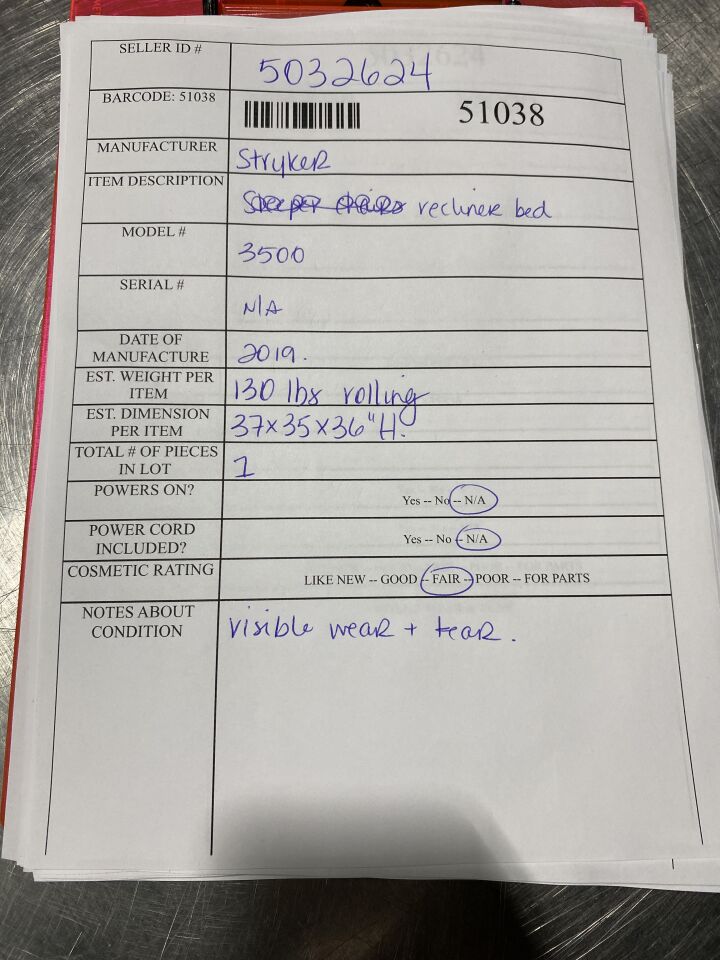 SELLER ID # 5032624
BARCODE: 51038 51038
MANUFACTURER Stryker
ITEM DESCRIPTION Sleeper chairs recliner bed
MODEL # 3500
SERIAL # N/A
DATE OF
MANUFACTURE 2019.
EST. WEIGHT PER
ITEM 130 lbs rolling
EST. DIMENSION
PER ITEM 37x35x36"H.
TOTAL # OF PIECES
IN LOT 1
POWERS ON? Yes -- No -- N/A
POWER CORD
INCLUDED? Yes -- No -- N/A
COSMETIC RATING LIKE NEW -- GOOD -- FAIR -- POOR -- FOR PARTS
NOTES ABOUT
CONDITION visible wear + tear.